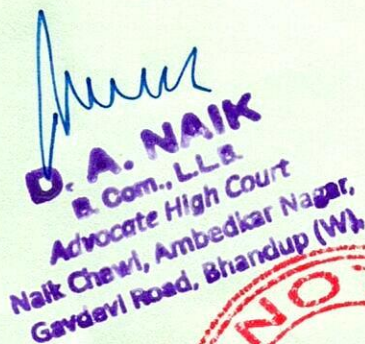 D. A. NAIK
B. Com., L.L.B.
Advocate High Court
Naik Chawl, Ambedkar Nagar,
Gavdevi Road, Bhandup (W).
NOT